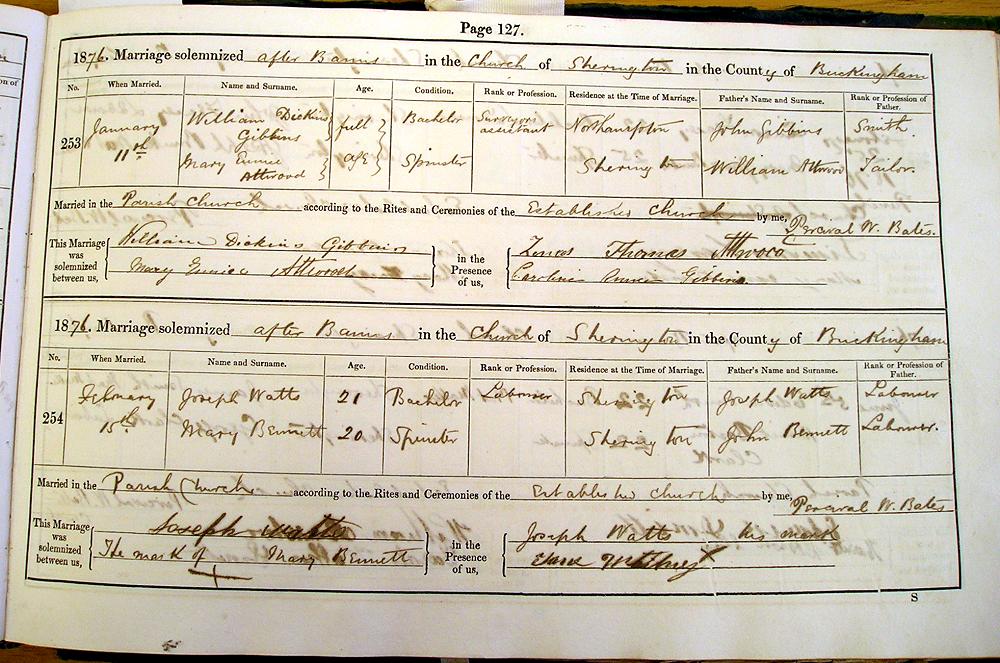 Page 127.
1876. Marriage solemnized after Banns in the Church of Sherington in the County of Buckingham
No. When Married. Name and Surname. Age. Condition. Rank or Profession. Residence at the Time of Marriage. Father's Name and Surname. Rank or Profession of Father.
253 January 11th William Dickins Gibbins full Bachelor Surveyor's assistant Northampton John Gibbins Smith.
Mary Eunice Attwood age Spinster Sherington William Attwood Tailor.
Married in the Parish Church according to the Rites and Ceremonies of the Established Church by me, Percival W. Bates.
This Marriage was solemnized between us, William Dickins Gibbins in the Presence of us, Thomas Attwood
Mary Eunice Attwood Caroline Gibbins
1876. Marriage solemnized after Banns in the Church of Sherington in the County of Buckingham
No. When Married. Name and Surname. Age. Condition. Rank or Profession. Residence at the Time of Marriage. Father's Name and Surname. Rank or Profession of Father.
254 February 15th Joseph Watts 21 Bachelor Labourer Sherington Joseph Watts Labourer
Mary Bennett 20 Spinster Sherington John Bennett Labourer.
Married in the Parish Church according to the Rites and Ceremonies of the Established Church by me, Percival W. Bates
This Marriage was solemnized between us, Joseph Watts in the Presence of us, Joseph Watts his mark
The mark of X Mary Bennett X
S